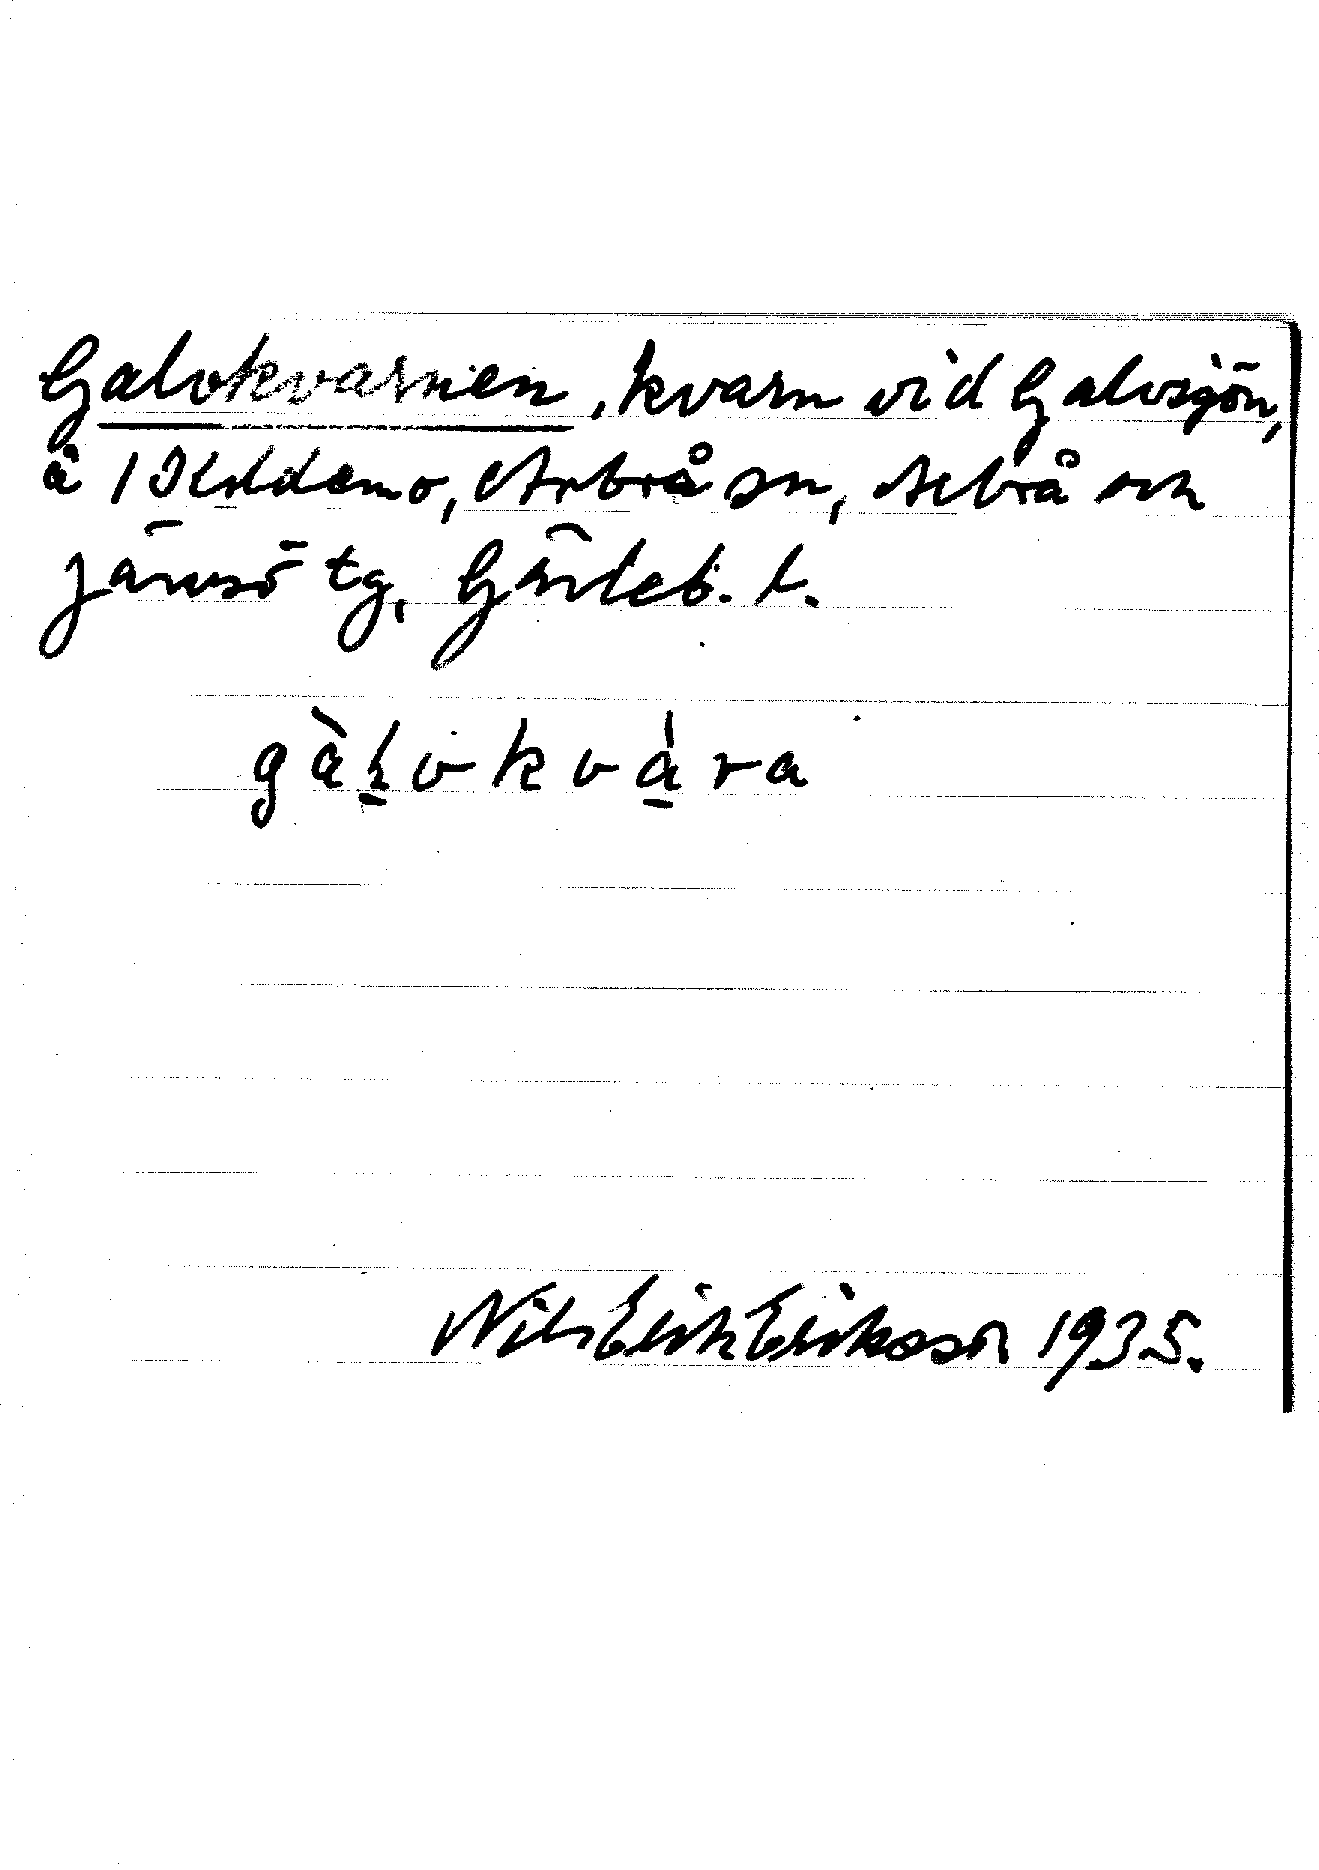 Galvkvarnen, kvarn vid Galvsjön,
å 1 Koldemo, Arbrå sn, Arbrå och
Järvsö tg, Gävleb. l.
gàḻvkvá̱ra
Nils Erik Eriksson 1935.